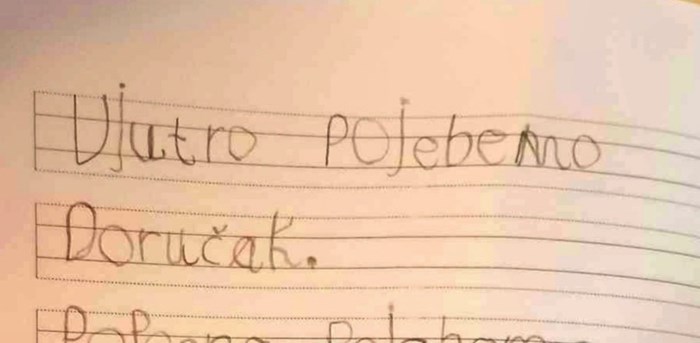 Ujutro pojebemo
Doručak.